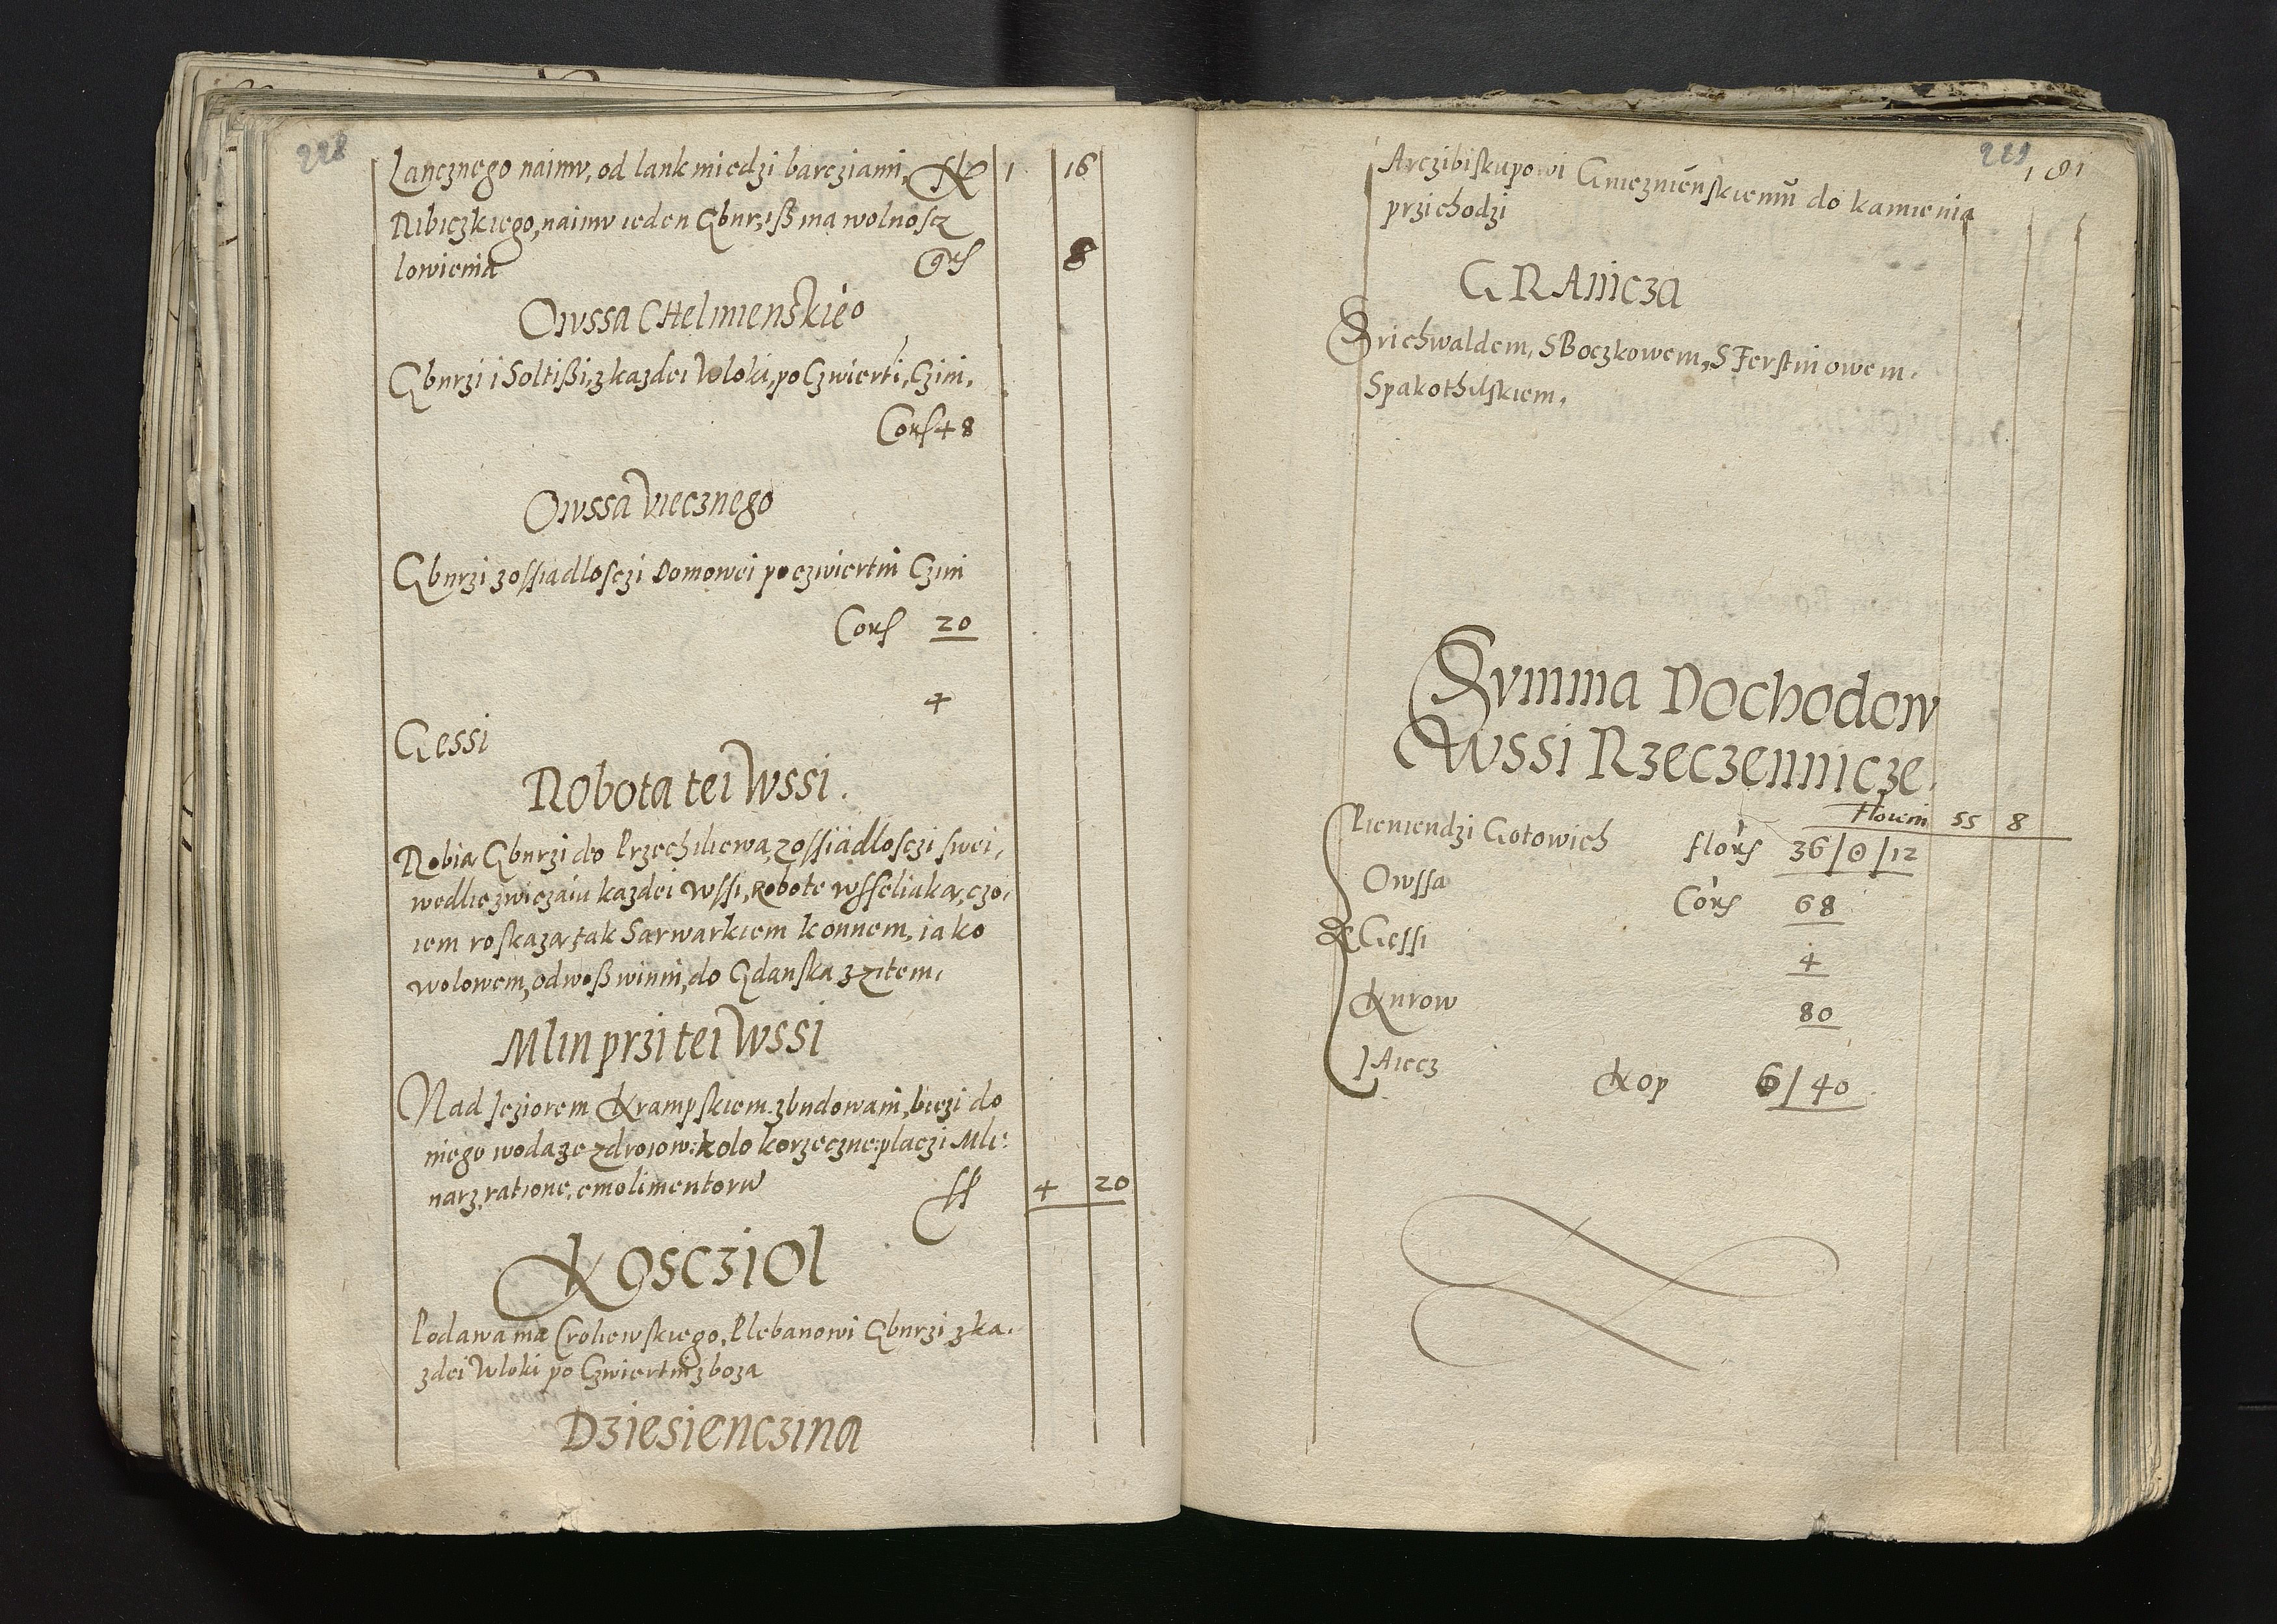 228
Lancznego naimv, od lank miedzi barcziami, 1 16
Ribiczkiego, naimv ieden Gburz, iß ma wolnoscz
lowienia Grſ 8
Owssa CHelmienskieo
Gburzi i Soltißi, z kazdei Wloki, po Czwierti, Czini,
Corſ 48
Owssa Viecznego
Gburzi z oſſiadloſczi Domowei po czwiertni Czini
Corſ 20
4
Gessi
Robota tei Wssi.
Robia Gburzi do Przechliewa, z oſſiadloſczi swei,
wedlie zwiczaiu kazdei Wſſi, Robote wſſeliaka, czo,
iem roſkaza, tak Sarwarkiem konnem, iako
wolowem, odwoß winni, do Gdanſka z zitem,
Mlin przi tei Wssi
Nad Jeziorem Krampſkiem zbudowani, bieżi do
niego woda ze zdroiow: kolo korzeczne: placzi Mli:
narz, ratione, emolimentorv ff 4 20
Koscziol
Podawania Croliewſkiego, Plebanowi Gburzi z ka,
zdei Wloki po Czwiertni zboza
Dziesienczina
229 181
Arczibiſkupowi Gnieznienſkiemu do kamienia
przichodzi
GRAnicza
Srichwaldem, S Boczkowem, S Ferſtniowem,
S pakothilſkiem,
Svmma Dochodow
Wssi Rzeczennicze.
Floreni 55 8
Pieniendzi Gotowich florſ 36/0/12
Owſſa Corſ 68
Geſſi 4
Kurow 80
JAiecz Kop 6/40